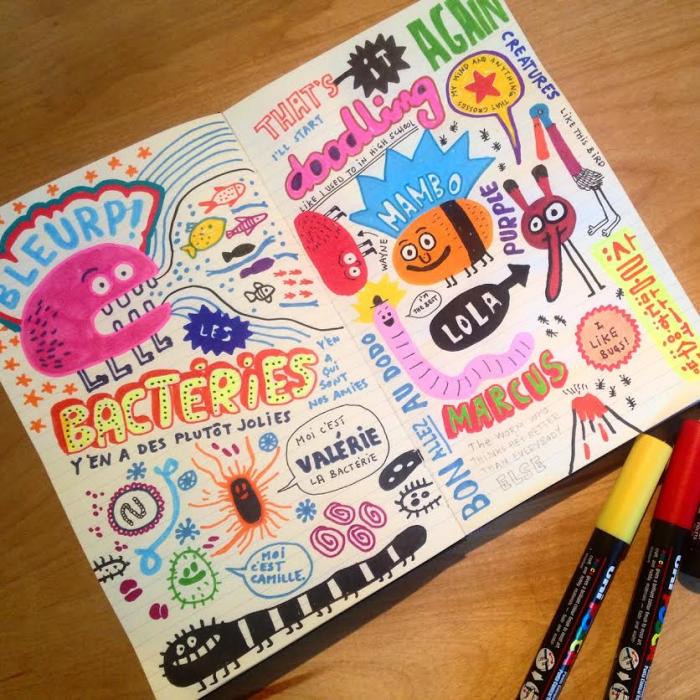 BLEURP!
LES
BACTÉRIES
Y'EN A DES PLUTÔT JOLIES
Y'EN
A
QUI
SONT
NOS AMIES
MOI C'EST
VALÉRIE
LA BACTÉRIE
MOI
C'EST
CAMILLE.
THAT'S
IT
AGAIN
I'LL START
doodling
LIKE I USED TO IN HIGH SCHOOL
CREATURES
MY MIND AND ANYTHING THAT CROSSES
LIKE THIS BIRD
MAMBO
WAYNE
PURPLE
I'M
THE BEST
LOLA
I
LIKE
BUGS!
BON ALLEZ AU DODO
MARCUS
The WORM WHO
THINKS HE'S BETTER
THAN EVERYBODY
ELSE
uni POSCA
uni POSCA